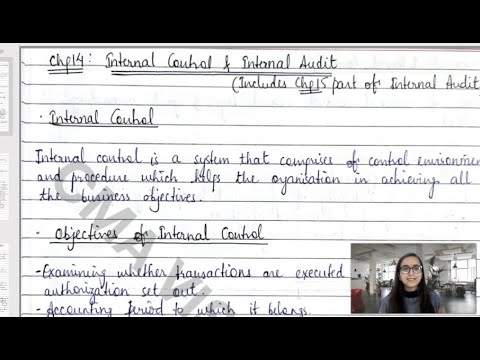 Chp14: Internal Control & Internal Audit
(Includes Chp15 part of Internal Audit
· Internal Control
Internal control is a system that comprises of control environmen
and procedure which helps the organisation in achieving all
the business objectives.
· Objectives of Internal Control
- Examining whether transactions are executed
authorization set out.
- Accounting period to which it belongs.
CMA Vi